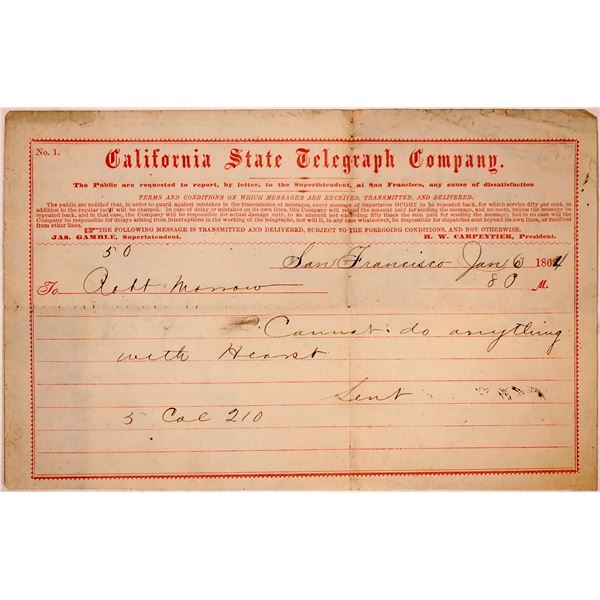 No. 1.
California State Telegraph Company.
The Public are requested to report, by letter, to the Superintendent, at San Francisco, any cause of dissatisfaction
TERMS AND CONDITIONS ON WHICH MESSAGES ARE RECEIVED, TRANSMITTED, AND DELIVERED.
The public are notified that, in order to guard against mistakes in the transmission of messages, every message of importance OUGHT to be repeated back, for which service fifty per cent. in
addition to the regular tariff will be charged. In case of delay or mistakes on its own lines, this Company will refund the amount received for sending the message, and no more, unless the message be
repeated back, and in that case, the Company will be responsible for actual damage only, to an amount not exceeding fifty times the sum paid for sending the message; but in no case will the
Company be responsible for delays arising from interruptions in the working of the telegraphs, nor will it in any case whatsoever, be responsible for dispatches sent beyond its own lines, or received
from other lines.
THE FOLLOWING MESSAGE IS TRANSMITTED AND DELIVERED, SUBJECT TO THE FOREGOING CONDITIONS, AND NOT OTHERWISE.
JAS. GAMBLE, Superintendent. H. W. CARPENTIER, President.
50 San Francisco Jan 6 1864
To Robt Morrow 80 M.
Cannot do anything
with Hearst
Sent
5 Col 210